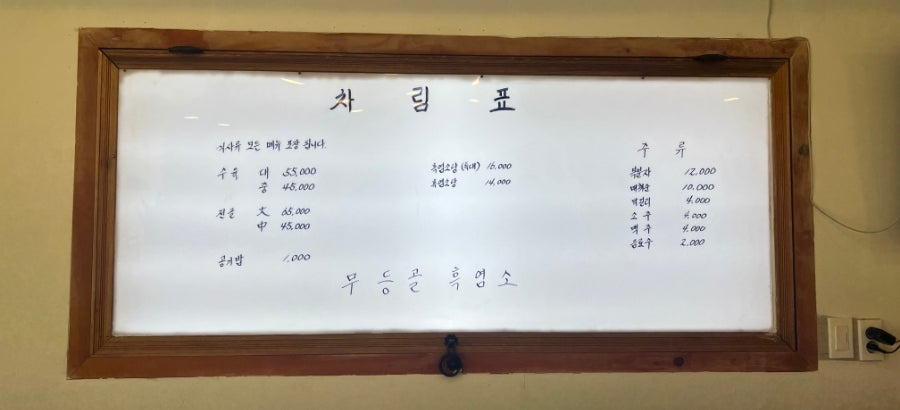 차 림 표
식사류 모든 메뉴 포장 됩니다.
수육 대 55,000
중 45,000
전골 大 65,000
中 45,000
공기밥 1,000
흑염소탕 (특대) 16,000
흑염소탕 14,000
주 류
복분자 12,000
매취순 10,000
막걸리 4,000
소 주 4,000
맥 주 4,000
음료수 2,000
무등골 흑염소